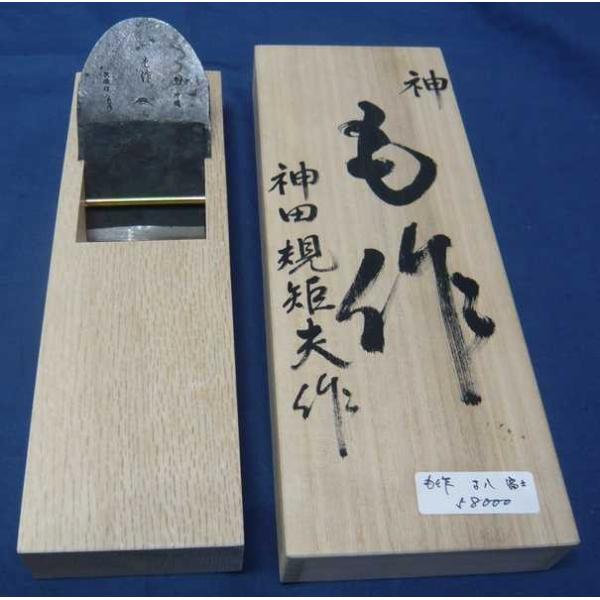 神
も作
神田規矩夫作
も作 寸八 富士
58000